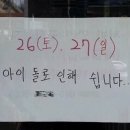 26(토). 27(일)
아이 돌로 인해 쉽니다